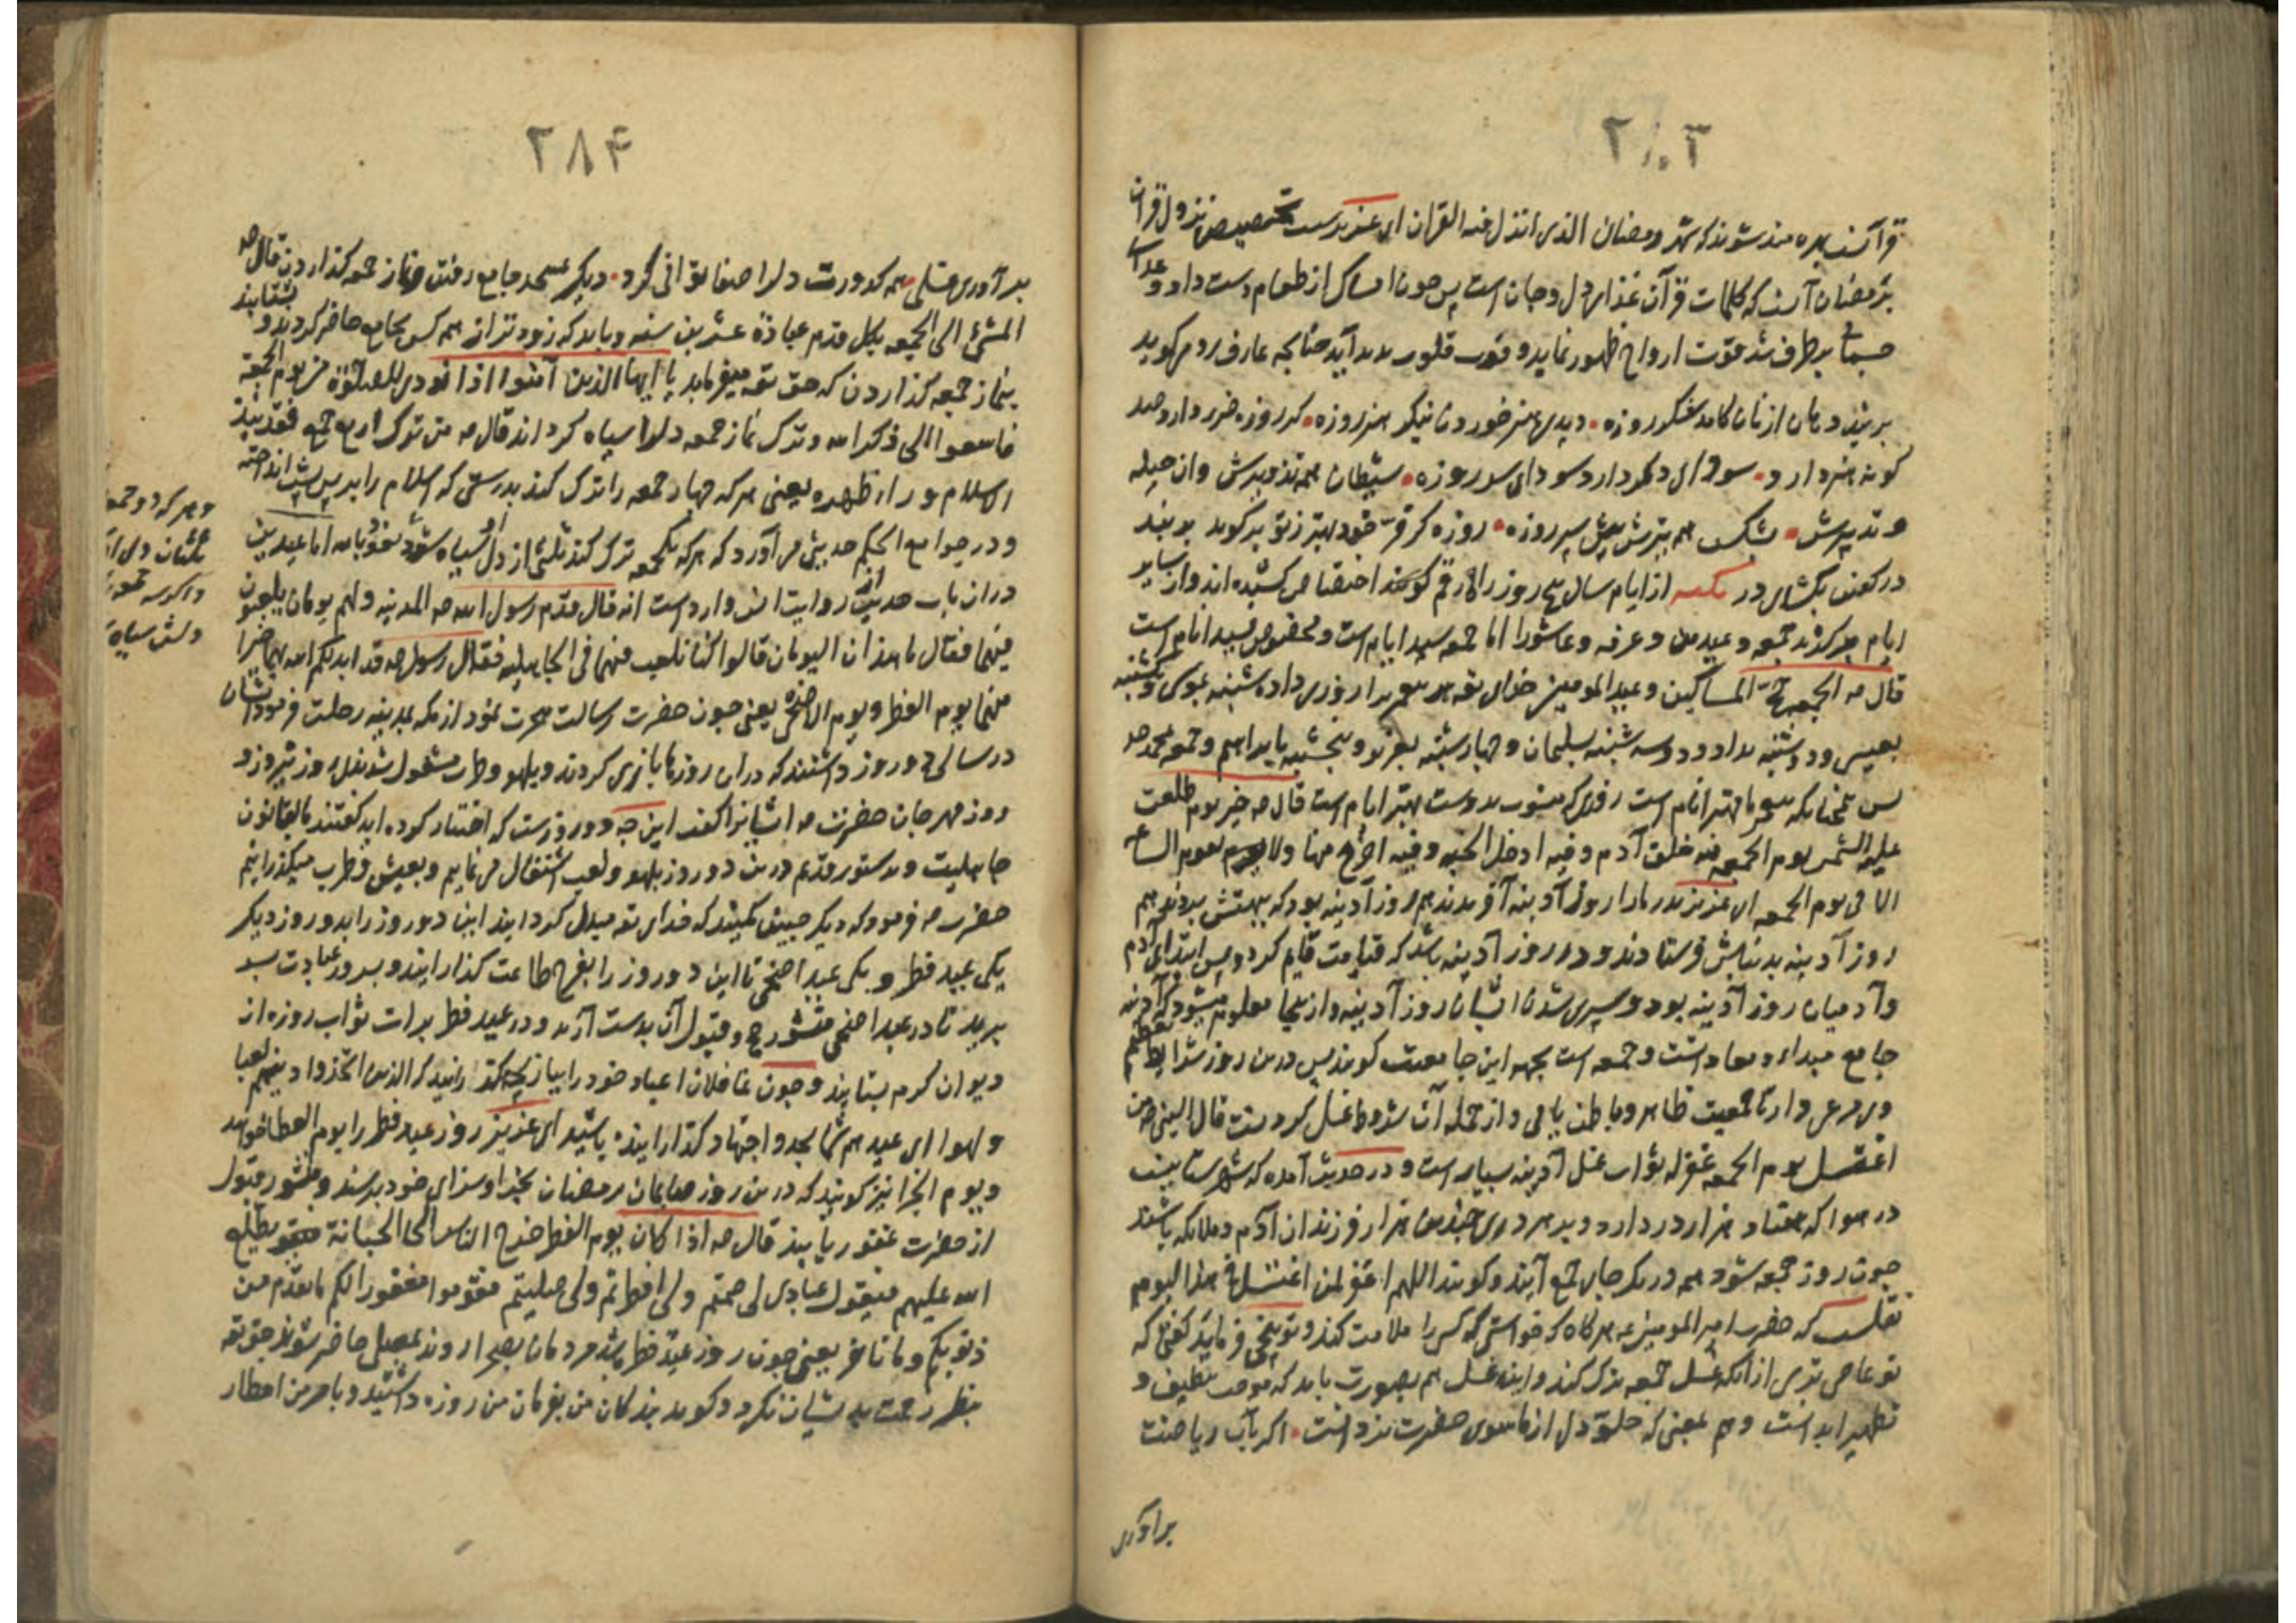 ۲۸۳
قرآنند بهره مند شوند که شهر رمضان الذی انزل فیه القران ای عزیز بدرست تخصیص نزول قران
برمضان آنست که کلمات قرآن غذای دل و جان است پس چون امساک از طعام دست داد و غذای
جسمانی برطرف شد قوت ارواح ظهور نماید و قوت قلوب بدید آید چنانچه عارف رومی گوید
بربند دهان از نان کامد شکر روزه • دیدی هنر خوردن بنگر هنر روزه •
سودای دکر دارد سودای سر روزه • شیطان همه تدبیرش وان حیله
و تزویرش • بشکست همه تیرش پیش سپر روزه • روزه کر و فر خود بهتر ز تو برگوید بربند
در گفتن بگشای در نکته از ایام سال پنج روز را رقم اختصاص کشیده اند و از سایر
ایام برگزیده جمعه و عیدین و عرفه و عاشورا اما جمعه سید ایام است و مخصوص بسید انام است
قال صه الجمعة حج المساکین و عید المومنین خدای تعه هر پیغمبر را روزی داده شنبه بموسی و یکشنبه
بعیسی و دوشنبه بداود و سه شنبه بسلیمان و چهارشنبه بعزیر و پنجشنبه بابراهیم و جمعه بمحمد صه
پس چنانکه پیغمبر ما بهتر انام است روزی که منسوب بدوست بهتر ایام است قال صه خیر یوم طلعت
علیه الشمس یوم الجمعه فیه خلق آدم و فیه ادخل الجنه و فیه اخرج منها ولا یقوم الساعة
الا فی یوم الجمعه ای عزیز پدر ما را روز آدینه آفریدند هم روز آدینه بود که ببهشتش بردند هم
روز آدینه بدنیایش فرستادند و در روز آدینه باشد که قیامت قایم کردد پس ابتدای آدم
و آدمیان روز آدینه بود و سپری شدن ایشان روز آدینه و از ینجا معلوم میشود که آدینه
جامع مبداء و معاد است و جمعه است بجهه این جامعیت کویند پس درین روز شرایط تعظیم
وی مرعی دار تا جمعیت ظاهر و باطن یابی و از جمله آن شروط غسل کردنست قال النبی صه من
اغتسل یوم الجمعه غفر له ثواب غسل آدینه بسیار است و در حدیث آمده که شهرستانیست
در هوا که هفتاد هزار در دارد و بر هر دری چندین هزار فرزندان آدم و ملائکه باشند
چون روز جمعه شود همه در یکجای جمع آیند و کویند اللهم اغفر لمن اغتسل فی هذا الیوم
نقلست که حضرت امیر المومنین عه هرگاه که خواستی که کسی را ملامت کند و توبیخ فرماید کفتی که
تو عاصی تری از آنکه غسل جمعه ترک کند و این غسل هم بصورت باید که موجب تنظیف و
تطهیر بدنست و هم بمعنی که خلوّ دل از ماسوی حضرت نزد است • اکر بآب ریاضت
برآوری

۲۸۴
برآوری غسلی • همه کدورت دل را صفا توانی کرد • دیگر بمسجد جامع رفتن و نماز جمعه کذاردن قال صه
المشی الی الجمعه بکل قدم عبادة عشرین سنه و باید که زودتر از همه کس بجامع حاضر کردد و بشتابد
بنماز جمعه کذاردن که حق تعه میفرماید یا ایها الذین آمنوا اذا نودی للصلوة من یوم الجمعة
فاسعوا الی ذکر الله و ترک نماز جمعه دل را سیاه کرداند قال صه من ترک اربع جمع فقد نبذ
الاسلام وراء ظهره یعنی هر که چهار جمعه را ترک کند بدرستی که اسلام را بر پس پشت انداخته
و در جوامع الحکم حدیثی می آورد که هر که یکجمعه ترک کند ثلثی از دل او سیاه شود نعوذ بالله اما عیدین
در آن باب حدیث روایت انس وارد است انه قال قدم رسول الله صه المدینه ولهم یومان یلعبون
فیهما فقال ما هذان الیومان قالوا کنا نلعب فیهما فی الجاهلیه فقال رسول صه قد ابدلکم الله بهما خیرا
منهما یوم الفطر و یوم الاضحی یعنی چون حضرت رسالت هجرت نمود از مکه بمدینه رحلت فرمود ایشان
در سالی دو روز داشتند که در آن روزها بازی کردند و بلهو و طرب مشغول شدندی روز نیروز و
روز مهرجان حضرت صه ایشانرا گفت این چه دو روزست که اختیار کرده اید گفتند ما بقانون
جاهلیت و بدستور قدیم درین دو روز بلهو و لعب اشتغال می نماییم و بعیش و طرب میکذرانیم
حضرت صه فرمود که دیگر چنین مکنید که خدای تعه مبدل کردانید این دو روز را بدو روز دیگر
یکی عید فطر و یکی عید اضحی تا این دو روز را بفرح طاعت کذارانید و بسرور عبادت بسر
برید تا در عید اضحی منشور حج و قبول آن بدست آرید و در عید فطر برات ثواب روزه از
دیوان کرم بستانید و چون غافلان اعیاد خود را ببازیچه نکذرانید که الذین اتخذوا دینهم لعبا
و لهوا ای عید هم شما بجد و اجتهاد کذرانیده باشید ای عزیز روز عید فطر را یوم العطا خوانند
و یوم الجزا نیز کویند که درین روز صایمان رمضان بجزا و سزای خود برسند و منشور قبول
از حضرت غفور یابند قال صه اذا کان یوم الفطر خرج الناس الی الجبانة یطلع
الله علیهم فیقول عبادی لی صمتم ولی افطرتم ولی صلیتم فقوموا مغفورا لکم ما تقدم من
ذنوبکم و ما تاخر یعنی چون روز عید فطر باشد مردمان بصحرا روند بمصلی حاضر شوند حق تعه
بنظر رحمت بدیشان نکرد و کوید بندکان من بفرمان من روزه داشتید و بامر من افطار
و هر که دو جمعه
دلش سیاه